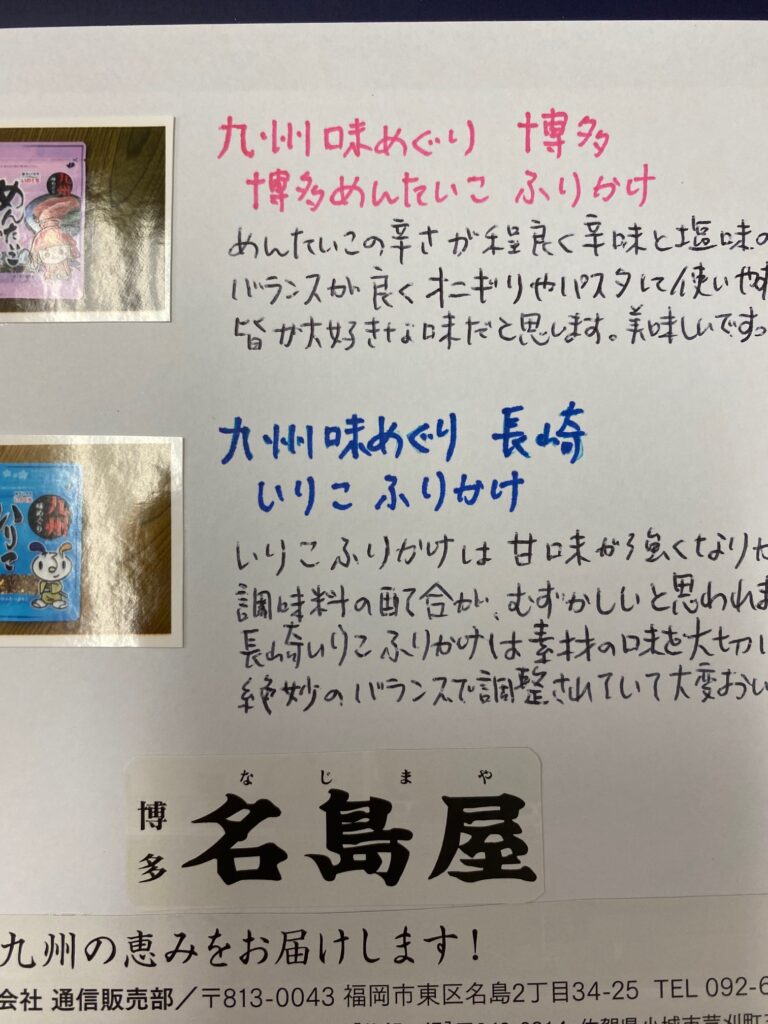 九州味めぐり 博多
博多めんたいこ ふりかけ
めんたいこの辛さが程良く辛味と塩味の
バランスが良くオニギリやパスタにて使いや
皆が大好きな味だと思います。美味しいですっ
めんたいこ
九州
九州味めぐり 長崎
いりこ ふりかけ
いりこふりかけは甘味が強くなりが
調味料の配合が、むずかしいと思われま
長崎いりこふりかけは素材の味を大切に
絶妙のバランスで調整されていて大変おい
いりこ
九州
味めぐり
なじまや
博多 名島屋
九州の恵みをお届けします!
会社 通信販売部/〒813-0043 福岡市東区名島2丁目34-25 TEL 092-6
佐賀県小城市芦刈町